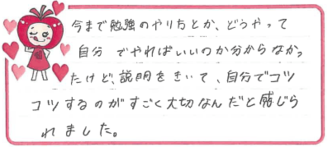 今まで勉強のやり方とか、どうやって
自分でやればいいのか分からなかっ
たけど、説明をきいて、自分でコツ
コツするのがすごく大切なんだと感じら
れました。